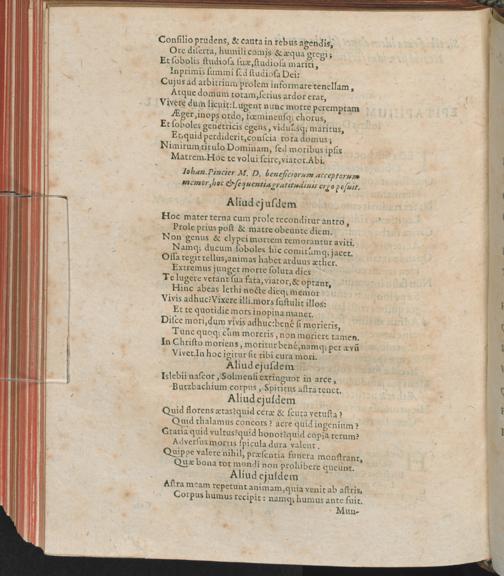 Consilio prudens, & cauta in rebus agendis,
Ore diserta, humili comis & æqua gregi;
Et sobolis studiosa suæ, studiosa mariti,
Inprimis summi sed studiosa Dei:
Cujus ad arbitrium prolem informare tenellam,
Atque domum totam, serius ardor erat,
Vivere dum licuit: Lugent nunc morte peremptam
Æger, inops ordo, fœmineusq; chorus,
Et soboles genetricis egens, viduusq; maritus,
Et quid perdiderit, conscia tota domus;
Nimirum titulo Dominam, sed moribus ipsis
Matrem. Hoc te volui scire, viator. Abi.
Iohan. Pincier M. D. beneficiorum acceptorum
memor, hoc & sequentia gratitudinis ergo posuit.
Aliud ejusdem
Hoc mater terna cum prole reconditur antro,
Prole prius post & matre obeunte diem.
Non genus & clypei mortem remorantur aviti.
Namq; ducum soboles hic comitumq; jacet.
Ossa tegit tellus, animas habet arduus æther.
Extremus junget morte soluta dies
Te lugere vetant sua fata, viator, & optant,
Hinc abeas lethi nocte dieq; memor
Vivis adhuc? Vixere illi. mors sustulit illos:
Et te quotidie mors inopina manet.
Disce mori, dum vivis adhuc: benè si morieris,
Tunc quoq; cùm moreris, non moriere tamen.
In Christo moriens, moritur benè, namq; per ævũ
Vivet. In hoc igitur sit tibi cura mori.
Aliud ejusdem
Islebii nascor, Solmensi extinguor in arce,
Butzbachium corpus, Spiritus astra tenet.
Aliud ejusdem
Quid florens ætas? quid ceræ & scuta vetusta?
Quid thalamus concors? acre quid ingenium?
Gratia quid vultus? quid honor? quid copia rerum?
Adversus mortis spicula dura valent.
Quippe valere nihil, præsentia funera monstrant,
Quæ bona tot mundi non prohibere queunt.
Aliud ejusdem
Astra meam repetunt animam, quia venit ab astris.
Corpus humus recipit: namq; humus ante fuit.
Mun-